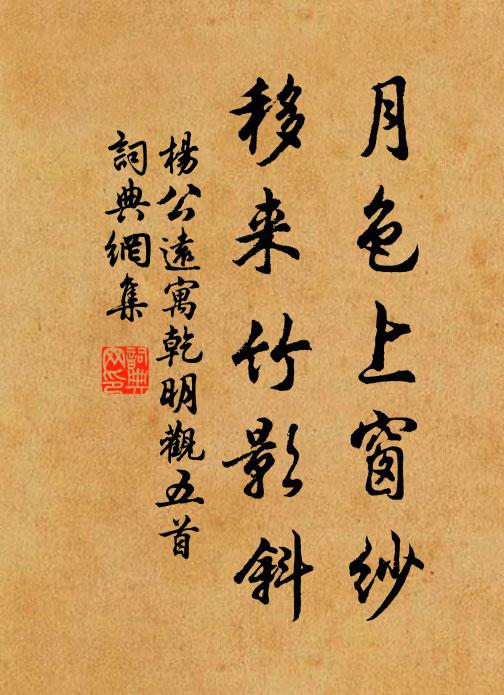 月色上窗紗
移来竹影斜
楊公遠寓乾明觀五首
詞典網集
詞典网印